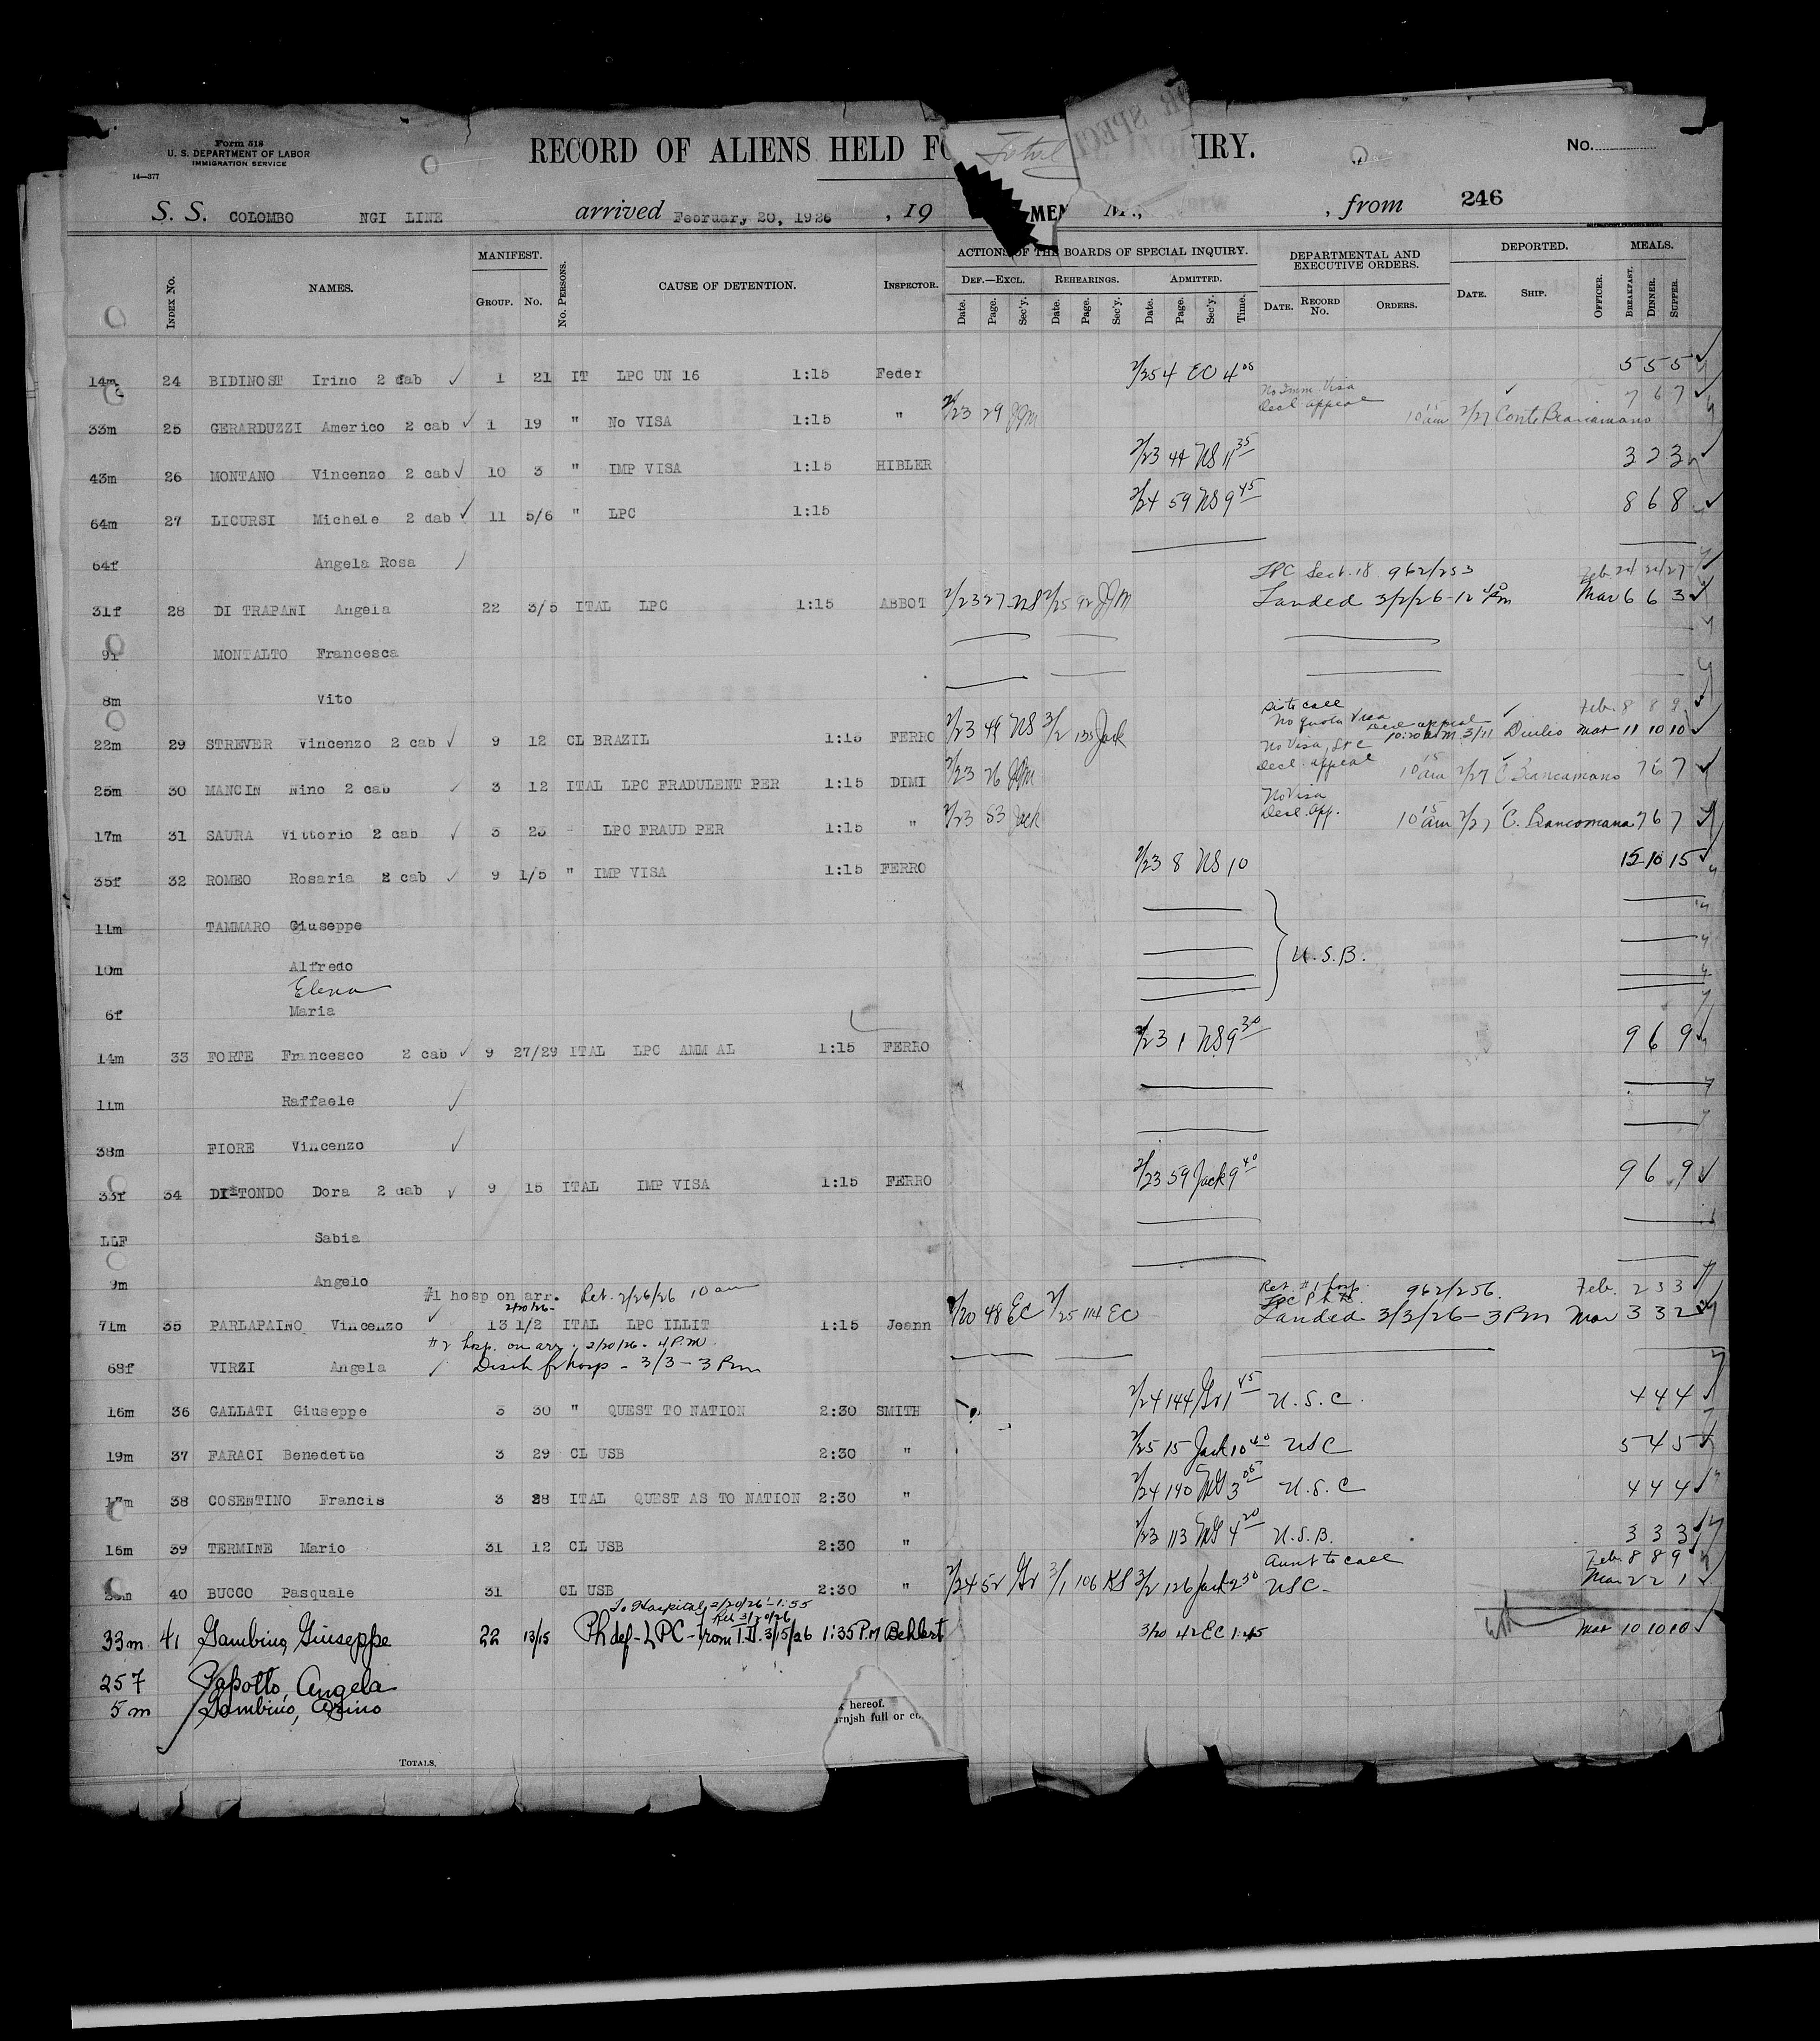 Form 518
U. S. DEPARTMENT OF LABOR
IMMIGRATION SERVICE
14—377
RECORD OF ALIENS HELD FO
IRY.
No.
S. S. COLOMBO NGI LINE arrived February 20, 1926 , 19
MEN
, from 246
INDEX NO. NAMES. MANIFEST. GROUP. NO. NO. PERSONS. CAUSE OF DETENTION. INSPECTOR.
ACTIONS OF THE BOARDS OF SPECIAL INQUIRY. DEPARTMENTAL AND EXECUTIVE ORDERS. DEPORTED. MEALS.
DEF.—EXCL. REHEARINGS. ADMITTED.
Date. Page. Sec'y. Date. Page. Sec'y. Date. Page. Sec'y. Time. DATE. RECORD NO. ORDERS. DATE. SHIP. OFFICER. BREAKFAST. DINNER. SUPPER.
14m 24 BIDINOST Irino 2 cab 1 21 IT LPC UN 16 1:15 Feder 2/25 4 EC 4 05 5 5 5
No Imm. Visa
Decl. appeal
33m 25 GERARDUZZI Americo 2 cab 1 19 " No VISA 1:15 " 2/23 29 JJM 10 15 am 2/27 Conte Biancamano 7 6 7
43m 26 MONTANO Vincenzo 2 cab 10 3 " IMP VISA 1:15 HIBLER 2/23 44 NS 11 35 3 2 3
64m 27 LICURSI Michele 2 dab 11 5/6 " LPC 1:15 2/24 59 NS 9 45 8 6 8
64f Angela Rosa
LPC Sect. 18 962/253 Feb. 24 24 27
31f 28 DI TRAPANI Angela 22 3/5 ITAL LPC 1:15 ABBOT 2/23 27 NS 2/25 92 JJM Landed 3/2/26 - 12 Pm Mar 6 6 3
9f MONTALTO Francesca
8m Vito
Sist to call Feb. 8 8 9
No quota Visa Decl appeal
22m 29 STREVER Vincenzo 2 cab 9 12 CL BRAZIL 1:15 FERRO 2/23 49 NS 3/2 135 Jack 10:20 am 3/11 Duilio Mar 11 10 10
No Visa, LPC
Decl. appeal
25m 30 MANCIN Nino 2 cab 3 12 ITAL LPC FRADULENT PER 1:15 DIMI 2/23 76 JJM 10 15 am 2/27 C Biancamano 7 6 7
No Visa
Decl. App.
17m 31 SAURA Vittorio 2 cab 3 LPC FRAUD PER 1:15 " 2/23 83 Jack 10 15 am 2/27 C. Biancomana 7 6 7
35f 32 ROMEO Rosaria 2 cab 9 1/5 " IMP VISA 1:15 FERRO 2/23 8 NS 10 15 10 15
11m TAMMARO Giuseppe
10m Alfredo
U.S.B.
Elena
6f Maria
14m 33 FORTE Francesco 2 cab 9 27/29 ITAL LPC AMM AL 1:15 FERRO 2/23 1 NS 9 30 9 6 9
11m Raffaele
38m FIORE Vincenzo
33f 34 DI TONDO Dora 2 cab 9 15 ITAL IMP VISA 1:15 FERRO 2/23 59 Jack 9 40 9 6 9
LLF Sabia
9m Angelo
#1 hosp on arr. Ret. 2/26/26 10 am
2/20/26-
Ret. #1 hosp. 962/256. Feb. 2 3 3
71m 35 PARLAPAINO Vincenzo 13 1/2 ITAL LPC ILLIT 1:15 Jeann 2/20 48 EC 2/25 114 EC Landed 3/3/26 - 3 Pm Mar 3 3 2
#2 hosp. on arr. 2/20/26 - 4 P.M.
68f VIRZI Angela Disch fr hosp - 3/3 - 3 Pm
16m 36 CALLATI Giuseppe 3 30 " QUEST TO NATION 2:30 SMITH 2/24 144 Gr 1 45 U.S.C. 4 4 4
19m 37 FARACI Benedetta 3 29 CL USB 2:30 " 2/25 15 Jack 10 40 USC 5 4 5
17m 38 COSENTINO Francis 3 28 ITAL QUEST AS TO NATION 2:30 " 2/24 140 3 05 U.S.C 4 4 4
16m 39 TERMINE Mario 31 12 CL USB 2:30 " 2/23 113 4 20 U.S.B. 3 3 3
Aunt to call Feb. 8 8 9
40 BUCCO Pasquale 31 CL USB 2:30 " 2/24 52 Gr 3/1 106 KS 3/2 126 Jack 2 30 USC - Mar 2 2 1
To Hospital 2/20/26 - 1:55
Ret 3/20/26
33m 41 Gambino, Giuseppe 22 13/15 Ph def - LPC - from T.D. 3/15/26 1:35 P.M Behlert 3/20 42 EC 1:45 Mar 10 10 10
25 f Papotto, Angela
5 m Gambino,
hereof.
rnish full or co
TOTALS.